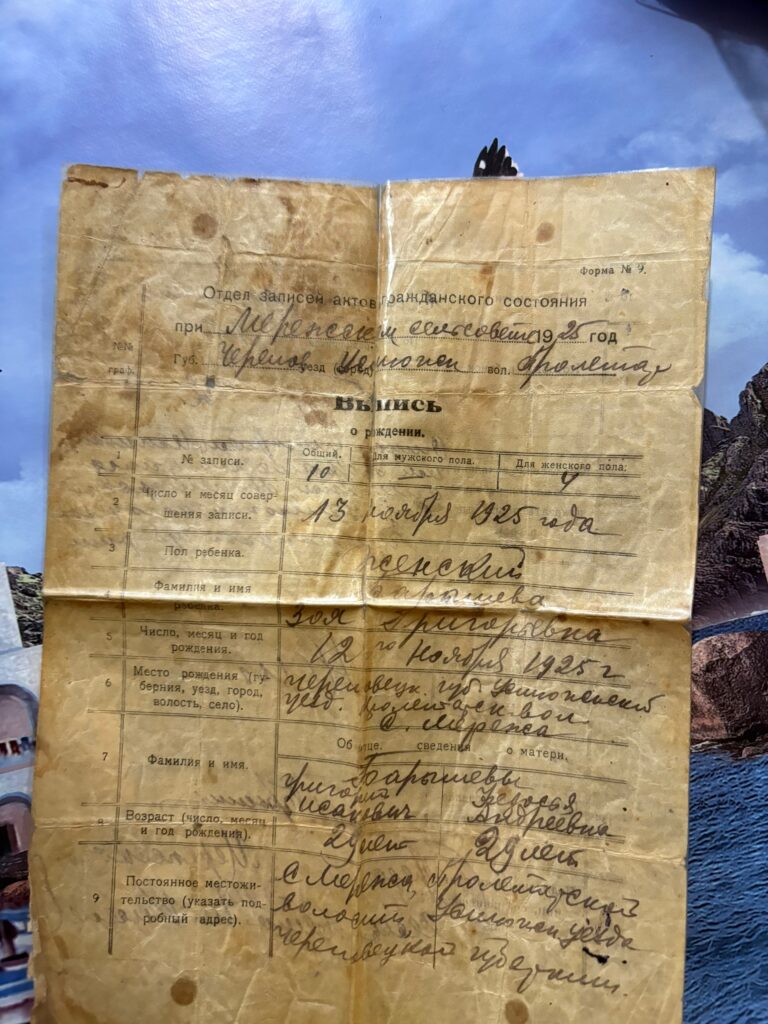 Форма № 9.
Отдел записей актов гражданского состояния
при Меренском сельсовете 1925 год
№№ граф.
Губ. Черепов. уезд (город) Устюжен вол. Пролетар
Выпись
о рождении.
1 № записи. Общий. 10 Для мужского пола. Для женского пола: 4
2 Число и месяц совершения записи. 13 ноября 1925 года
3 Пол ребенка. женский
4 Фамилия и имя ребенка. Барышева
Зоя Григорьевна
5 Число, месяц и год рождения. 12го ноября 1925 г
6 Место рождения (губерния, уезд, город, волость, село). Череповецк. губ. Устюженский
уезд. пролетарск. вол
с. Мережа
Об отце. сведения о матери.
7 Фамилия и имя. Барышевы
Григорий Исакович
Федосья Андреевна
8 Возраст (число, месяц и год рождения). 29 лет 29 лет
9 Постоянное местожительство (указать подробный адрес). С Мережа, пролетарской
волости Устюжен уезда
Череповецкой губернии.